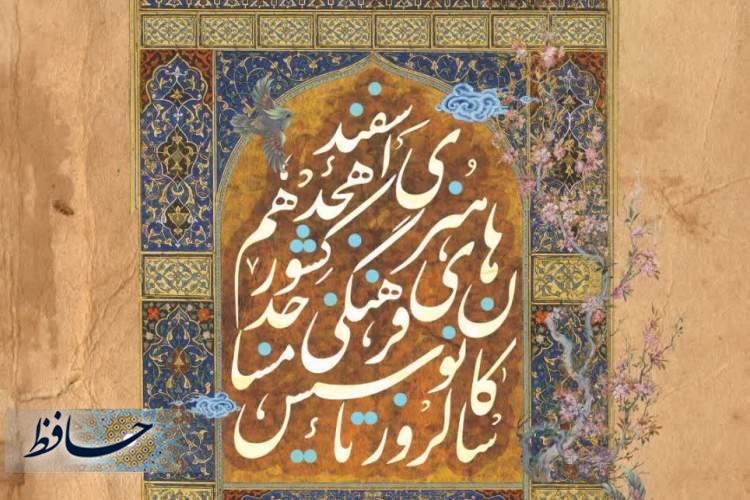 سالروز تأسیس
کانون های
فرهنگی هنری
مساجد کشور
هجدهم اسفند
حافظ